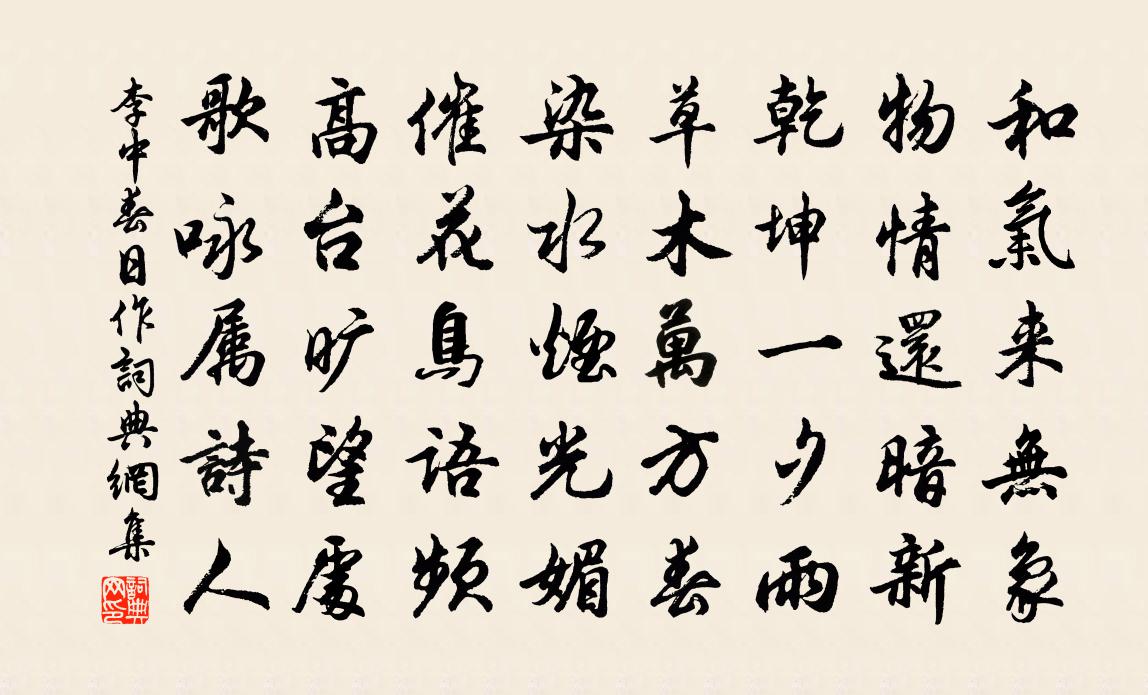 和氣来無象
物情還暗新
乾坤一夕雨
草木萬方春
染水煙光媚
催花鳥語頻
高台旷望處
歌咏属詩人
李中春日作詞典網集
詞典网印